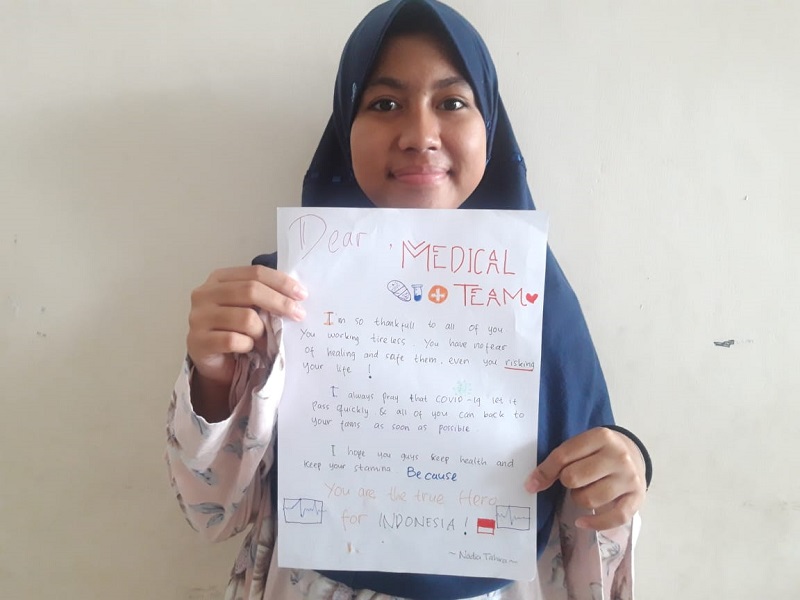 Dear, MEDICAL
TEAM
I'm so thankfull to all of you.
You working tireless. You have no fear
of healing and safe them. even you risking
your life !
I always pray that COVID-19 let it
pass quickly & all of you can back to
your fams as soon as possible.
I hope you guys keep health and
keep your stamina. Because
You are the true Hero
for INDONESIA !
~ Nadia